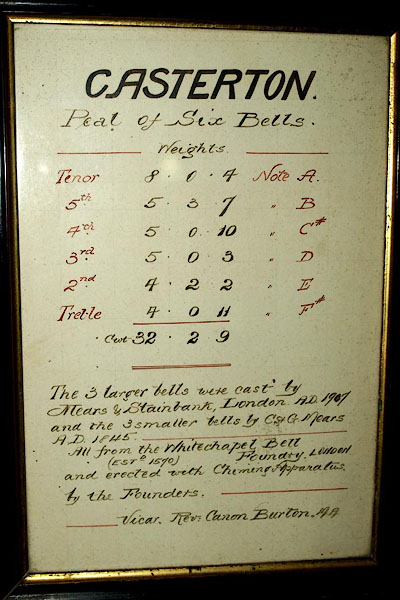 CASTERTON.
Peal of Six Bells.
Weights.
Tenor 8 · 0 · 4 Note A.
5th 5 · 3 · 7 " B
4th 5 · 0 · 10 " C#
3rd 5 · 0 · 3 " D
2nd 4 · 2 · 2 " E
Treble 4 · 0 · 11 " F#
Cwt 32 · 2 · 9
The 3 larger bells were cast by
Mears & Stainbank, London. A.D. 1907
and the 3 smaller bells by C & G. Mears
A.D. 1845.
All from the Whitechapel Bell
(ESTD 1570) Foundry. London
and erected with Chiming Apparatus
by the Founders.
Vicar. Rev: Canon Burton. M.A